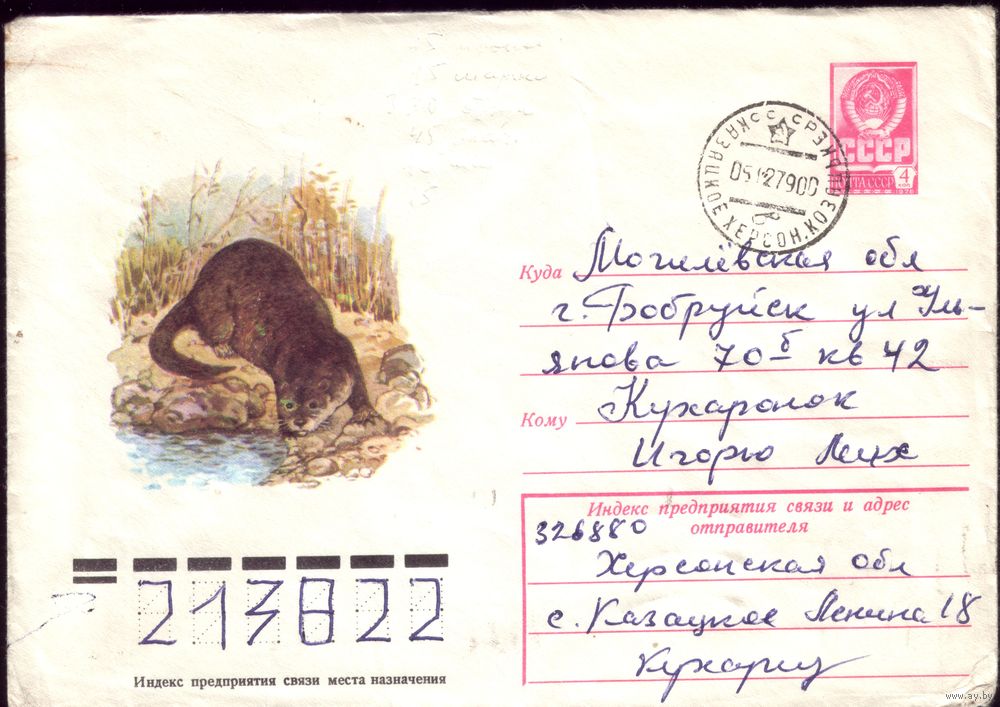 СССР
ПОЧТА СССР 4 КОП
1978
КАЗАЦКОЕ ХЕРСОН.
05 12 79 00
Куда Могилёвская обл
г. Бобруйск ул Уль-
янова 70 б кв 42
Кому
Игорю
Индекс предприятия связи и адрес
отправителя
326880
Херсонская обл
с. Казацкое Ленина 18
213822
Индекс предприятия связи места назначения
www.ay.by